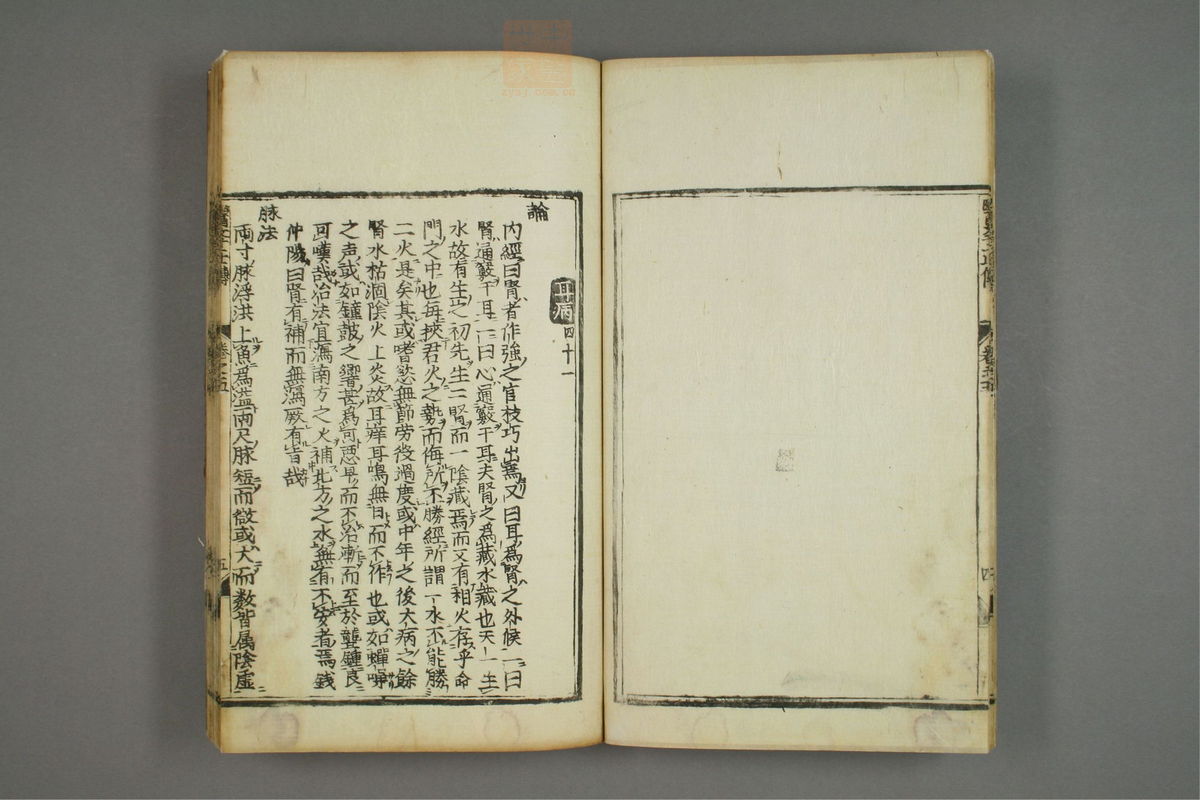 耳病 四十一
論
內經曰腎者作強之官技巧出焉又曰耳為腎之外候一曰
腎通竅于耳一曰心通竅于耳夫腎之為藏水藏也天一生
水故有生之初先生二腎而一陰藏焉而又有相火存乎命
門之中也每挾君火之勢而侮所不勝經所謂一水不能勝
二火是矣其或嗜慾無節勞役過度或中年之後大病之餘
腎水枯涸陰火上炎故耳痒耳鳴無日而不作也或如蟬噪
之声或如鐘鼓之響甚為可惡早而不治漸而至於聾鍾良
可嘆哉治法宜瀉南方之火補北方之水無有不安者焉錢
仲陽曰腎有補而無瀉厥有旨哉
脉法
兩寸脉浮洪上魚為溢兩尺脉短而微或大而数皆属陰虛
醫學正傳 卷之五 五